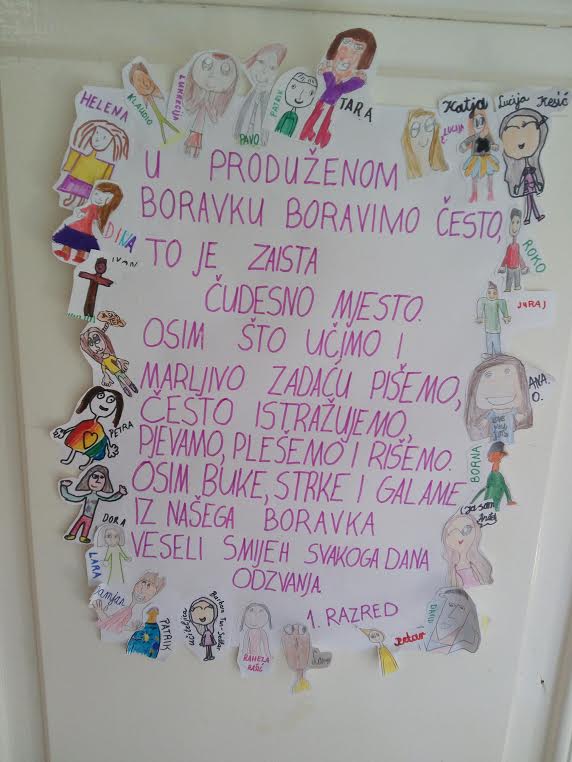 HELENA
KLAUDIO
LUKRECIJA
PAVO
PATRIK
TARA
LUCIJA
Katja
Lucija Kesić
DINA
IVAN
ROKO
JURAJ
ANA.
O.
PETRA
BORNA
DORA
LARA
U PRODUŽENOM
BORAVKU BORAVIMO ČESTO,
TO JE ZAISTA
ČUDESNO MJESTO.
OSIM ŠTO UČIMO I
MARLJIVO ZADAĆU PIŠEMO,
ČESTO ISTRAŽUJEMO,
PJEVAMO, PLEŠEMO I RIŠEMO.
OSIM BUKE, STRKE I GALAME
IZ NAŠEGA BORAVKA
VESELI SMIJEH SVAKOGA DANA
ODZVANJA.
1. RAZRED
PATRIK
učiteljica
RAHELA